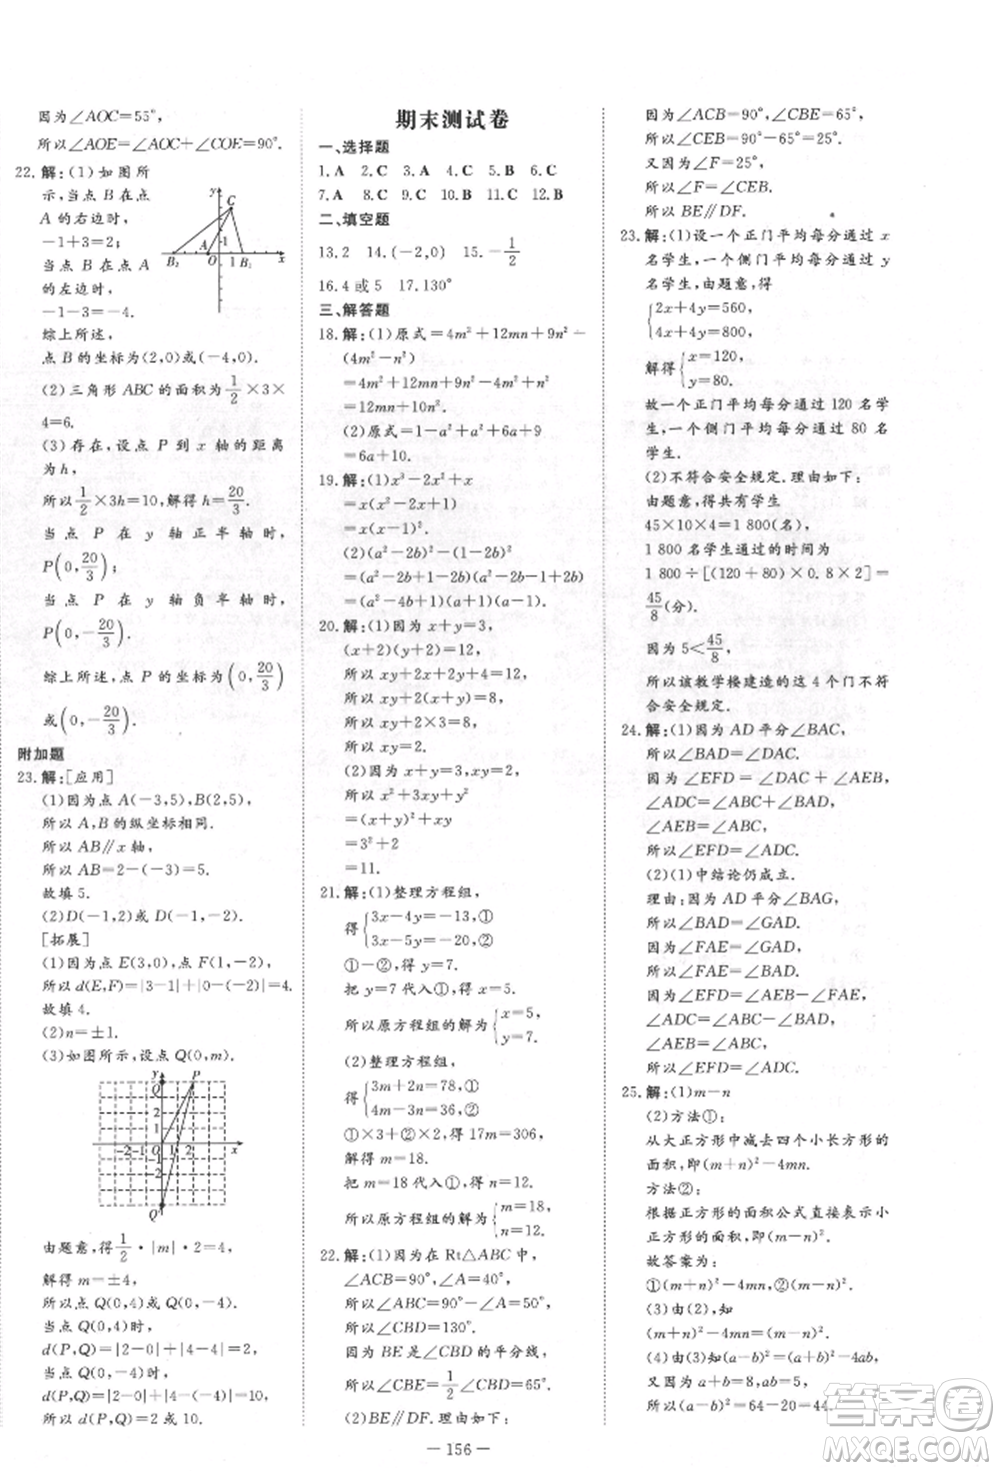 因为∠AOC=55°,
所以∠AOE=∠AOC+∠COE=90°.
22.解:(1)如图所
示,当点 B 在点
A 的右边时,
-1+3=2;
当点 B 在点 A
的左边时,
-1-3=-4.
综上所述,
点 B 的坐标为(2,0)或(-4,0).
(2)三角形 ABC 的面积为1/2×3×
4=6.
(3)存在,设点 P 到 x 轴的距离
为 h,
所以1/2×3h=10,解得 h=20/3.
当 点 P 在 y 轴 正 半 轴 时,
P(0,20/3);
当 点 P 在 y 轴 负 半 轴 时,
P(0,-20/3).
综上所述,点 P 的坐标为(0,20/3)
或(0,-20/3).
附加题
23.解:[应用]
(1)因为点 A(-3,5),B(2,5),
所以 A,B 的纵坐标相同.
所以 AB∥x 轴,
所以 AB=2-(-3)=5.
故填 5.
(2)D(1,2)或 D(1,-2).
[拓展]
(1)因为点 E(3,0),点 F(1,-2),
所以 d(E,F)=|3-1|+|0-(-2)|=4.
故填 4.
(2)n=±1.
(3)如图所示,设点 Q(0,m).
由题意,得1/2·|m|·2=4,
解得 m=±4,
所以点 Q(0,4)或 Q(0,-4).
当点 Q(0,4)时,
d(P,Q)=|2-0|+|4-4|=2;
当点 Q(0,-4)时,
d(P,Q)=|2-0|+|4-(-4)|=10.
期末测试卷
一、选择题
1.A 2.C 3.A 4.C 5.B 6.C
7.A 8.C 9.C 10.B 11.C 12.B
二、填空题
13.2 14.(-2,0) 15.-1/2
16.4 或 5 17.130°
三、解答题
18.解:(1)原式=4m²+12mn+9n²-
(4m²-n²)
=4m²+12mn+9n²-4m²+n²
=12mn+10n².
(2)原式=1-a²+a²+6a+9
=6a+10.
19.解:(1)x³-2x²+x
=x(x²-2x+1)
=x(x-1)².
(2)(a²-2b)²-(1-2b)²
=(a²-2b+1-2b)(a²-2b-1+2b)
=(a²-4b+1)(a+1)(a-1).
20.解:(1)因为 x+y=3,
(x+2)(y+2)=12,
所以 xy+2x+2y+4=12,
所以 xy+2(x+y)=8,
所以 xy+2×3=8,
所以 xy=2.
(2)因为 x+y=3,xy=2,
所以 x²+3xy+y²
=(x+y)²+xy
=3²+2
=11.
21.解:(1)整理方程组,
得{3x-4y=-13,①
3x-5y=-20,②
①-②,得 y=7.
把 y=7 代入①,得 x=5.
所以原方程组的解为{x=5,
y=7.
(2)整理方程组,
得{3m+2n=78,①
4m-3n=36,②
①×3+②×2,得 17m=306,
解得 m=18.
把 m=18 代入①,得 n=12.
所以原方程组的解为{m=18,
n=12.
22.解:(1)因为在 Rt△ABC 中,
∠ACB=90°,∠A=40°,
所以∠ABC=90°-∠A=50°,
所以∠CBD=130°.
因为 BE 是∠CBD 的平分线,
所以∠CBE=1/2∠CBD=65°.
(2)BE∥DF.理由如下:
因为∠ACB=90°,∠CBE=65°,
所以∠CEB=90°-65°=25°.
又因为∠F=25°,
所以∠F=∠CEB=25°,
所以 BE∥DF.
23.解:(1)设一个正门平均每分通过 x
名学生,一个侧门平均每分通过 y
名学生,由题意,得
{2x+4y=560,
4x+4y=800,
解得{x=120,
y=80.
故一个正门平均每分通过 120 名学
生,一个侧门平均每分通过 80 名
学生.
(2)不符合安全规定.理由如下:
由题意,得共有学生
45×10×4=1 800(名),
1 800 名学生通过的时间为
1 800÷[(120+80)×0.8×2]=
45/8(分).
因为 5<45/8,
所以该教学楼建造的这 4 个门不符
合安全规定.
24.解:(1)因为 AD 平分∠BAC,
所以∠BAD=∠DAC.
因为∠EFD=∠AEB+∠DAC,
∠ADC=∠ABC+∠BAD,
∠AEB=∠ABC,
所以∠EFD=∠ADC.
(2)(1)中结论仍成立.
理由:因为 AD 平分∠BAG,
所以∠BAD=∠GAD.
因为∠FAE=∠GAD,
所以∠FAE=∠BAD.
因为∠EFD=∠AEB-∠FAE,
∠ADC=∠ABC-∠BAD,
∠AEB=∠ABC,
所以∠EFD=∠ADC.
25.解:(1)m-n
(2)方法①:
从大正方形中减去四个小长方形的
面积,即(m+n)²-4mn.
方法②:
根据正方形的面积公式直接表示小
正方形的面积,即(m-n)².
故答案为
①(m+n)²-4mn ②(m-n)²
(3)由(2),知
(m+n)²-4mn=(m-n)².
(4)由(3)可知(a-b)²=(a+b)²-4ab,
又因为 a+b=8,ab=5,
所以(a-b)²=64-20=44.
— 156 —
答案卷